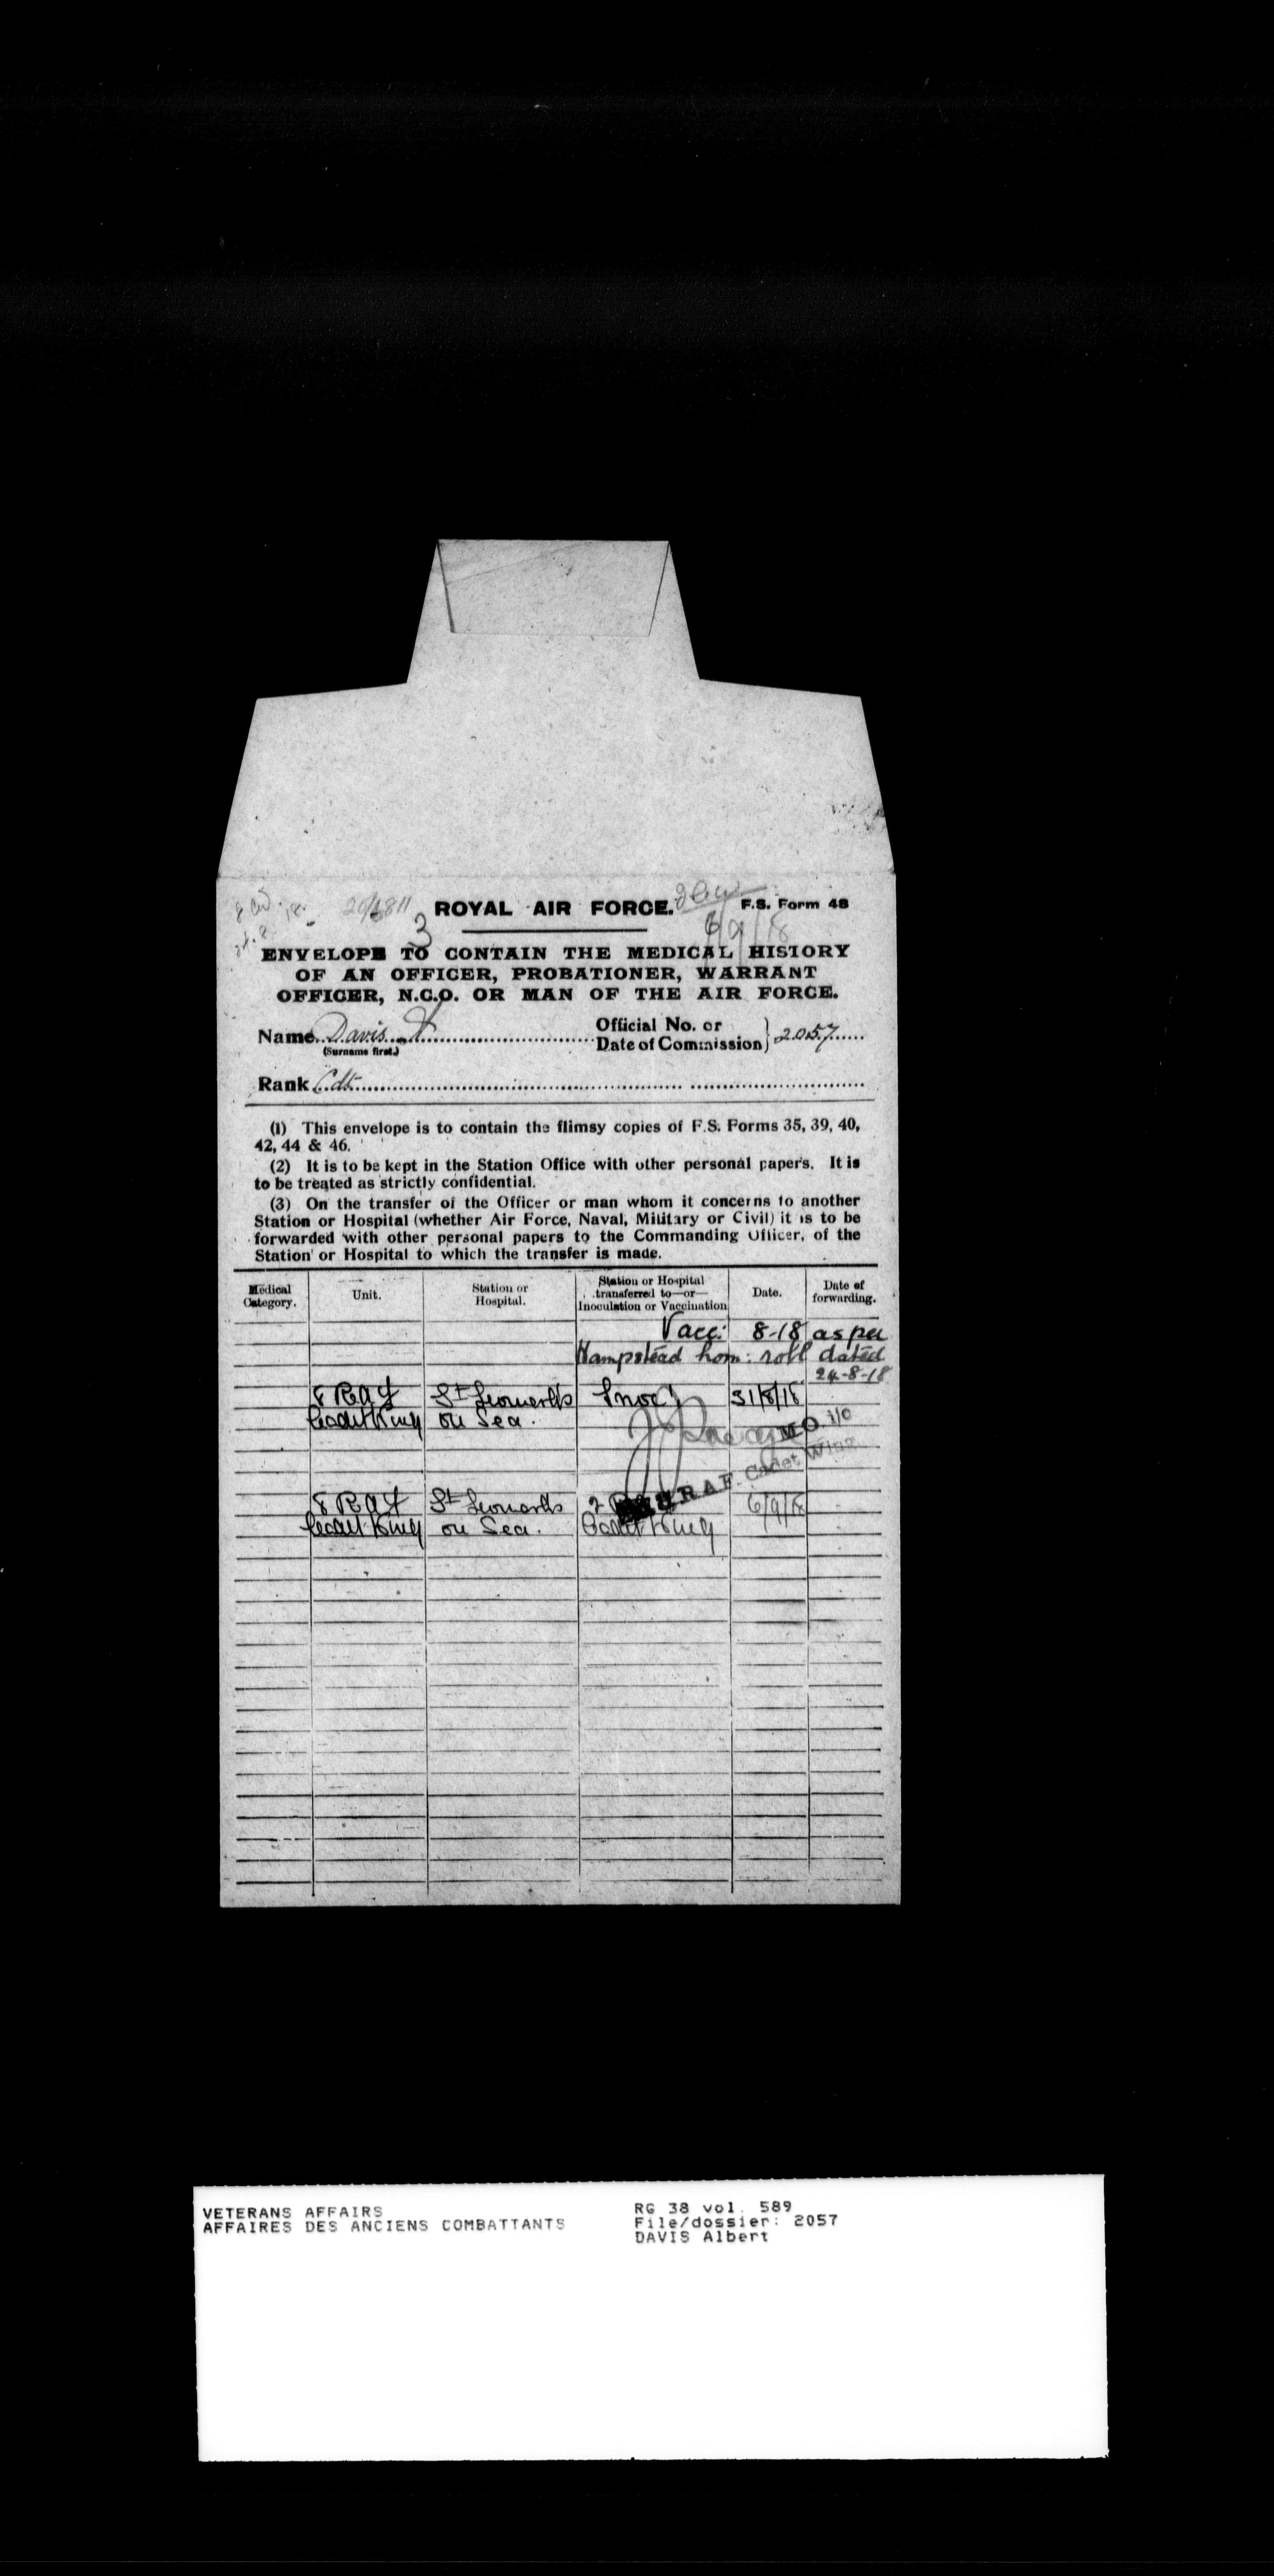 ROYAL AIR FORCE.
F.S. Form 48
3
6/9/18
ENVELOPE TO CONTAIN THE MEDICAL HISTORY
OF AN OFFICER, PROBATIONER, WARRANT
OFFICER, N.C.O. OR MAN OF THE AIR FORCE.
Name Davis A
(Surname first.)
Official No. or
Date of Commission } 2057
Rank Cdt
(1) This envelope is to contain the flimsy copies of F.S. Forms 35, 39, 40,
42, 44 & 46.
(2) It is to be kept in the Station Office with other personal papers. It is
to be treated as strictly confidential.
(3) On the transfer of the Officer or man whom it concerns to another
Station or Hospital (whether Air Force, Naval, Military or Civil) it is to be
forwarded with other personal papers to the Commanding Officer, of the
Station or Hospital to which the transfer is made.
Medical Category. Unit. Station or Hospital. Station or Hospital transferred to—or— Inoculation or Vaccination Date. Date of forwarding.
Vacc: 8-18 as per
Hampstead nom: roll dated
24-8-18
8 RAF St Leonards Inoc 31/8/18
Cadet Wing on Sea.
M.O. i/c
RAF. Cadet Wing
8 RAF St Leonards 2 6/9/18
Cadet Wing on Sea. Cadet Wing
VETERANS AFFAIRS
AFFAIRES DES ANCIENS COMBATTANTS
RG 38 vol. 589
File/dossier: 2057
DAVIS Albert